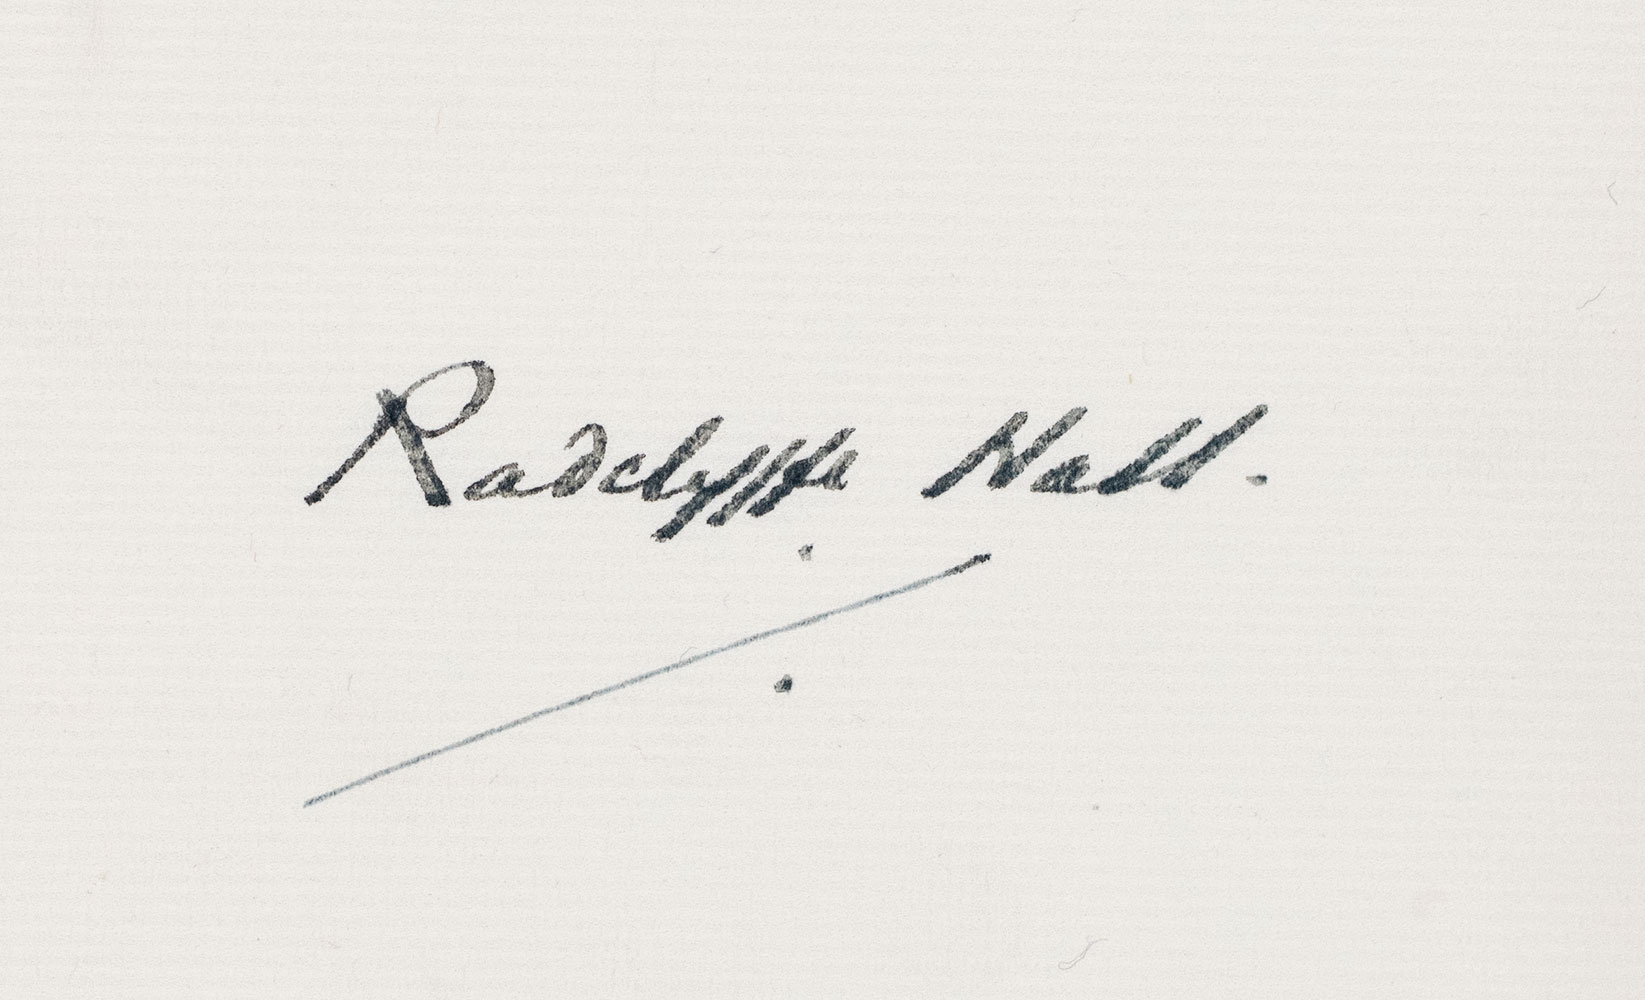 Radclyffe Hall.